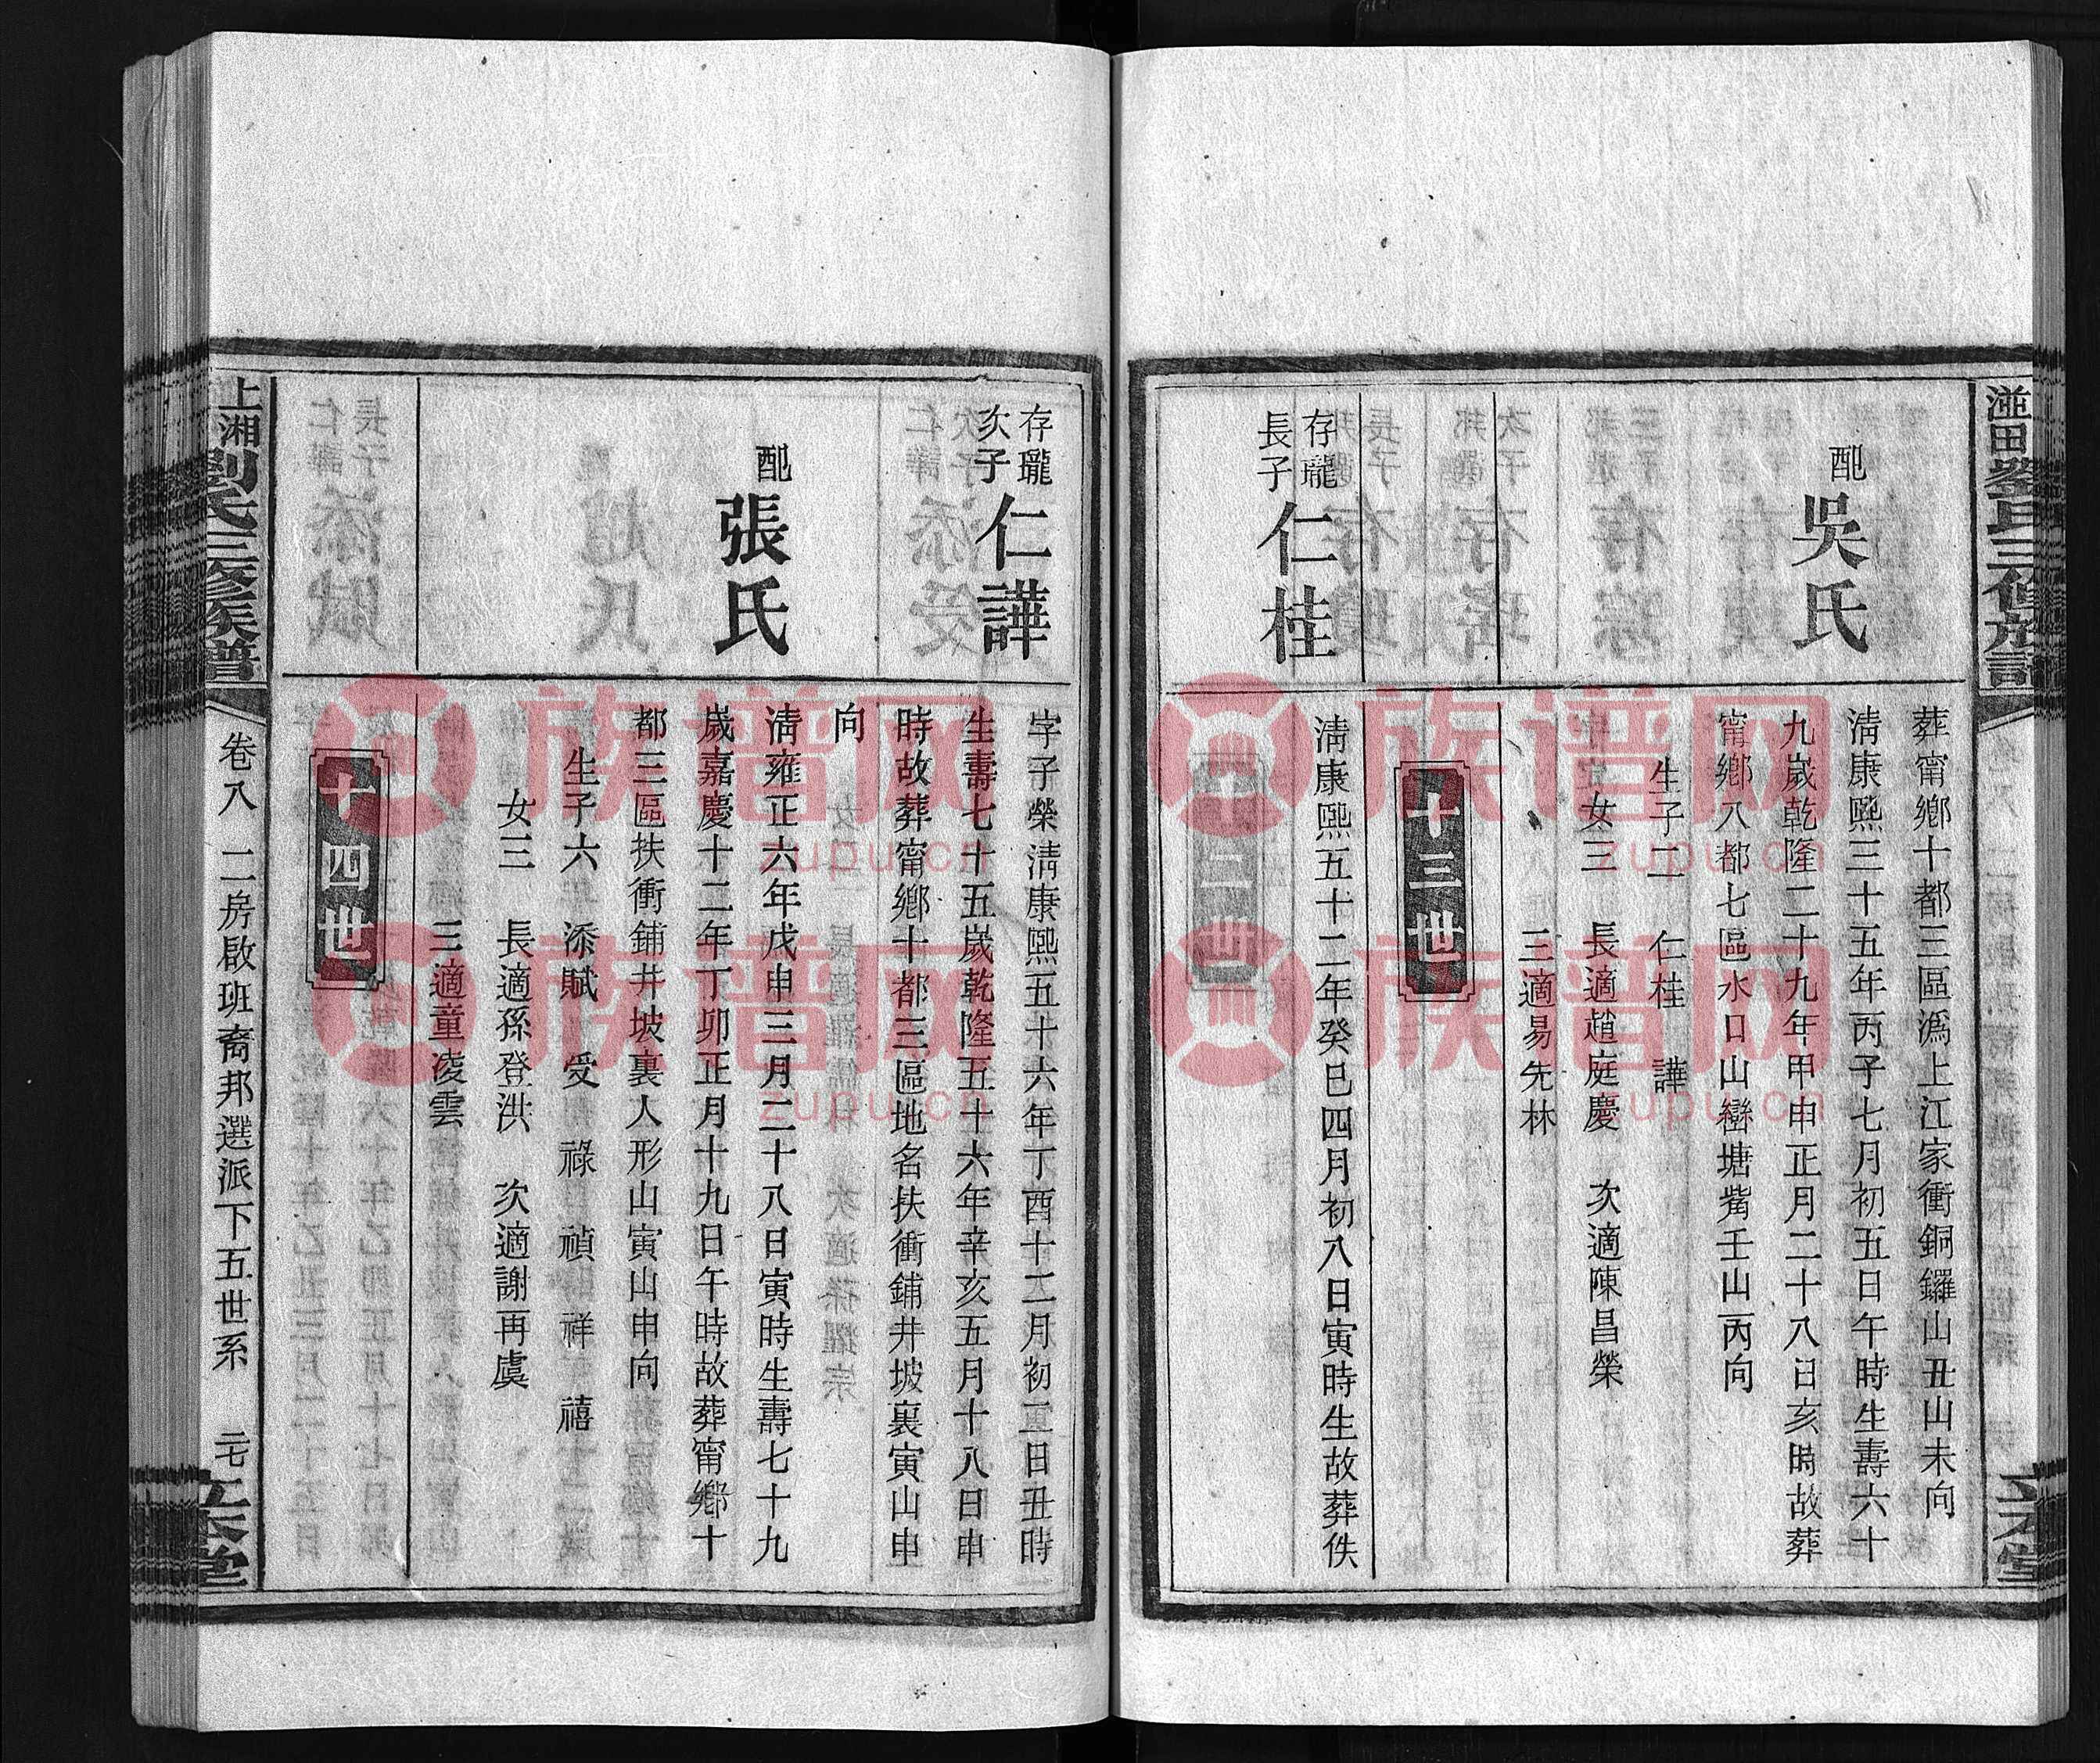 葬甯鄉十都三區溈上江家衝銅鑼山丑山未向
配吳氏
清康熙三十五年丙子七月初五日午時生壽六十
九歲乾隆二十九年甲申正月二十八日亥時故葬
甯鄉八都七區水口山巒塘觜壬山丙向
生子二 仁桂 譁
女三 長適趙庭慶 次適陳昌榮
三適易先林
十三世
存瓏長子
仁桂
清康熙五十二年癸巳四月初八日寅時生故葬佚
存瓏次子
仁譁
字子榮清康熙五十六年丁酉十二月初二日丑時
生壽七十五歲乾隆五十六年辛亥五月十八日申
時故葬甯鄉十都三區地名扶衝鋪井坡裏寅山申
向
配張氏
清雍正六年戊申三月二十八日寅時生壽七十九
歲嘉慶十二年丁卯正月十九日午時故葬甯鄉十
都三區扶衝鋪井坡裏人形山寅山申向
生子六 添賦 受 祿 禎 祥 禧
女三 長適孫登洪 次適謝再虞
三適童凌雲
十四世
上湘劉氏三修族譜
卷八 二房啟班裔邦選派下五世系 二七
族谱网
zupu.cn
族谱网
zupu.cn
族谱网
zupu.cn
族谱网
zupu.cn